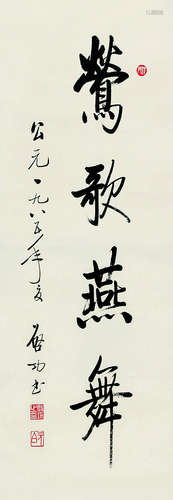 鶯歌燕舞
公元一九八五年夏
啓功书